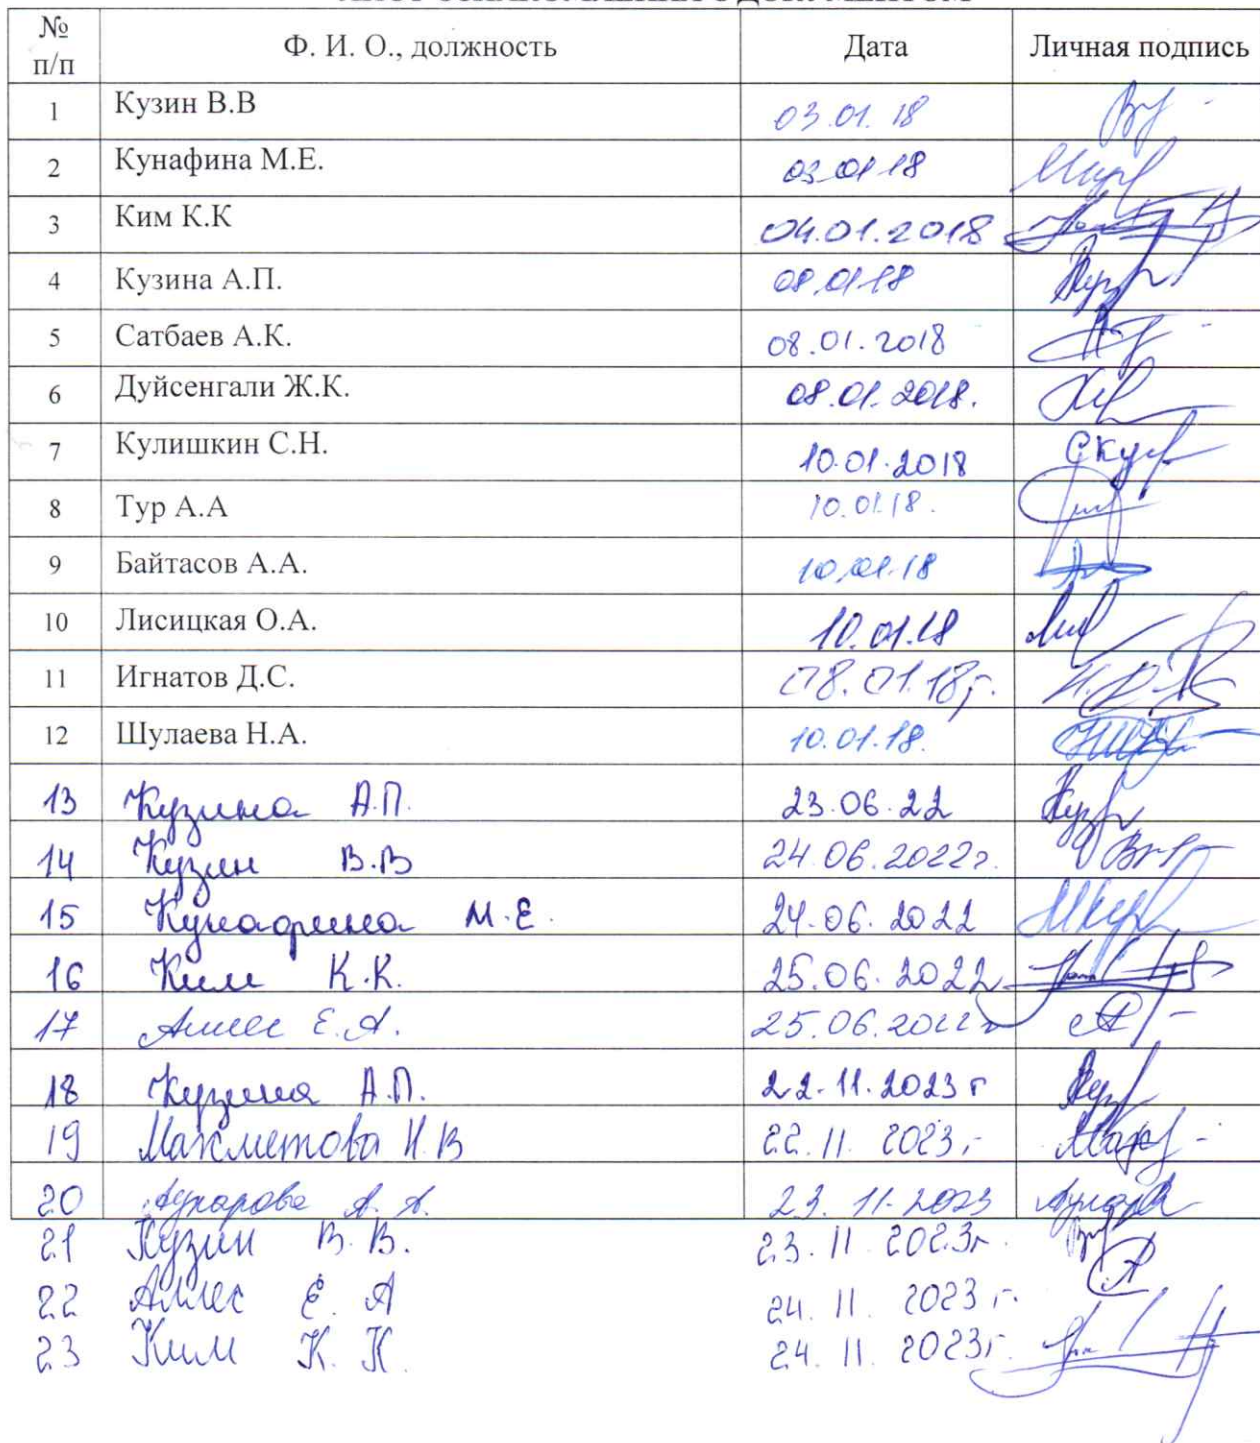 № п/п Ф. И. О., должность Дата Личная подпись
1 Кузин В.В 03.01.18
2 Кунафина М.Е. 03.01.18
3 Ким К.К 04.01.2018
4 Кузина А.П. 08.01.18
5 Сатбаев А.К. 08.01.2018
6 Дуйсенгали Ж.К. 08.01.2018.
7 Кулишкин С.Н. 10.01.2018
8 Тур А.А 10.01.18.
9 Байтасов А.А. 10.01.18
10 Лисицкая О.А. 10.01.18
11 Игнатов Д.С. 08.01.18г.
12 Шулаева Н.А. 10.01.18.
13 Кузина А.П. 23.06.22
14 Кузин В.В 24.06.2022г.
15 Кунафина М.Е. 24.06.2022
16 Ким К.К. 25.06.2022
17 Аллес Е.А. 25.06.2022г
18 Кузина А.П. 22.11.2023 г
19 Махметова Н.В 22.11.2023г
20 А.А. 23.11.2023
21 Кузин В.В. 23.11.2023г.
22 Аллес Е.А 24.11.2023г.
23 Ким К.К. 24.11.2023г.